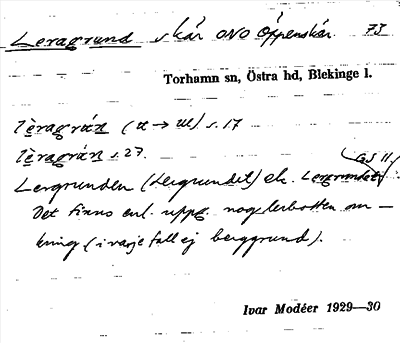 Leragrund skär ONO Öppenskär. 73
Torhamn sn, Östra hd, Blekinge l.
s. 17
s. 27. GS II.
Lergrunden (Lergrundet) ek. Lergrundet
Det finns enl. uppg. nog lerbotten om-
kring (i varje fall ej berggrund).
Ivar Modéer 1929—30